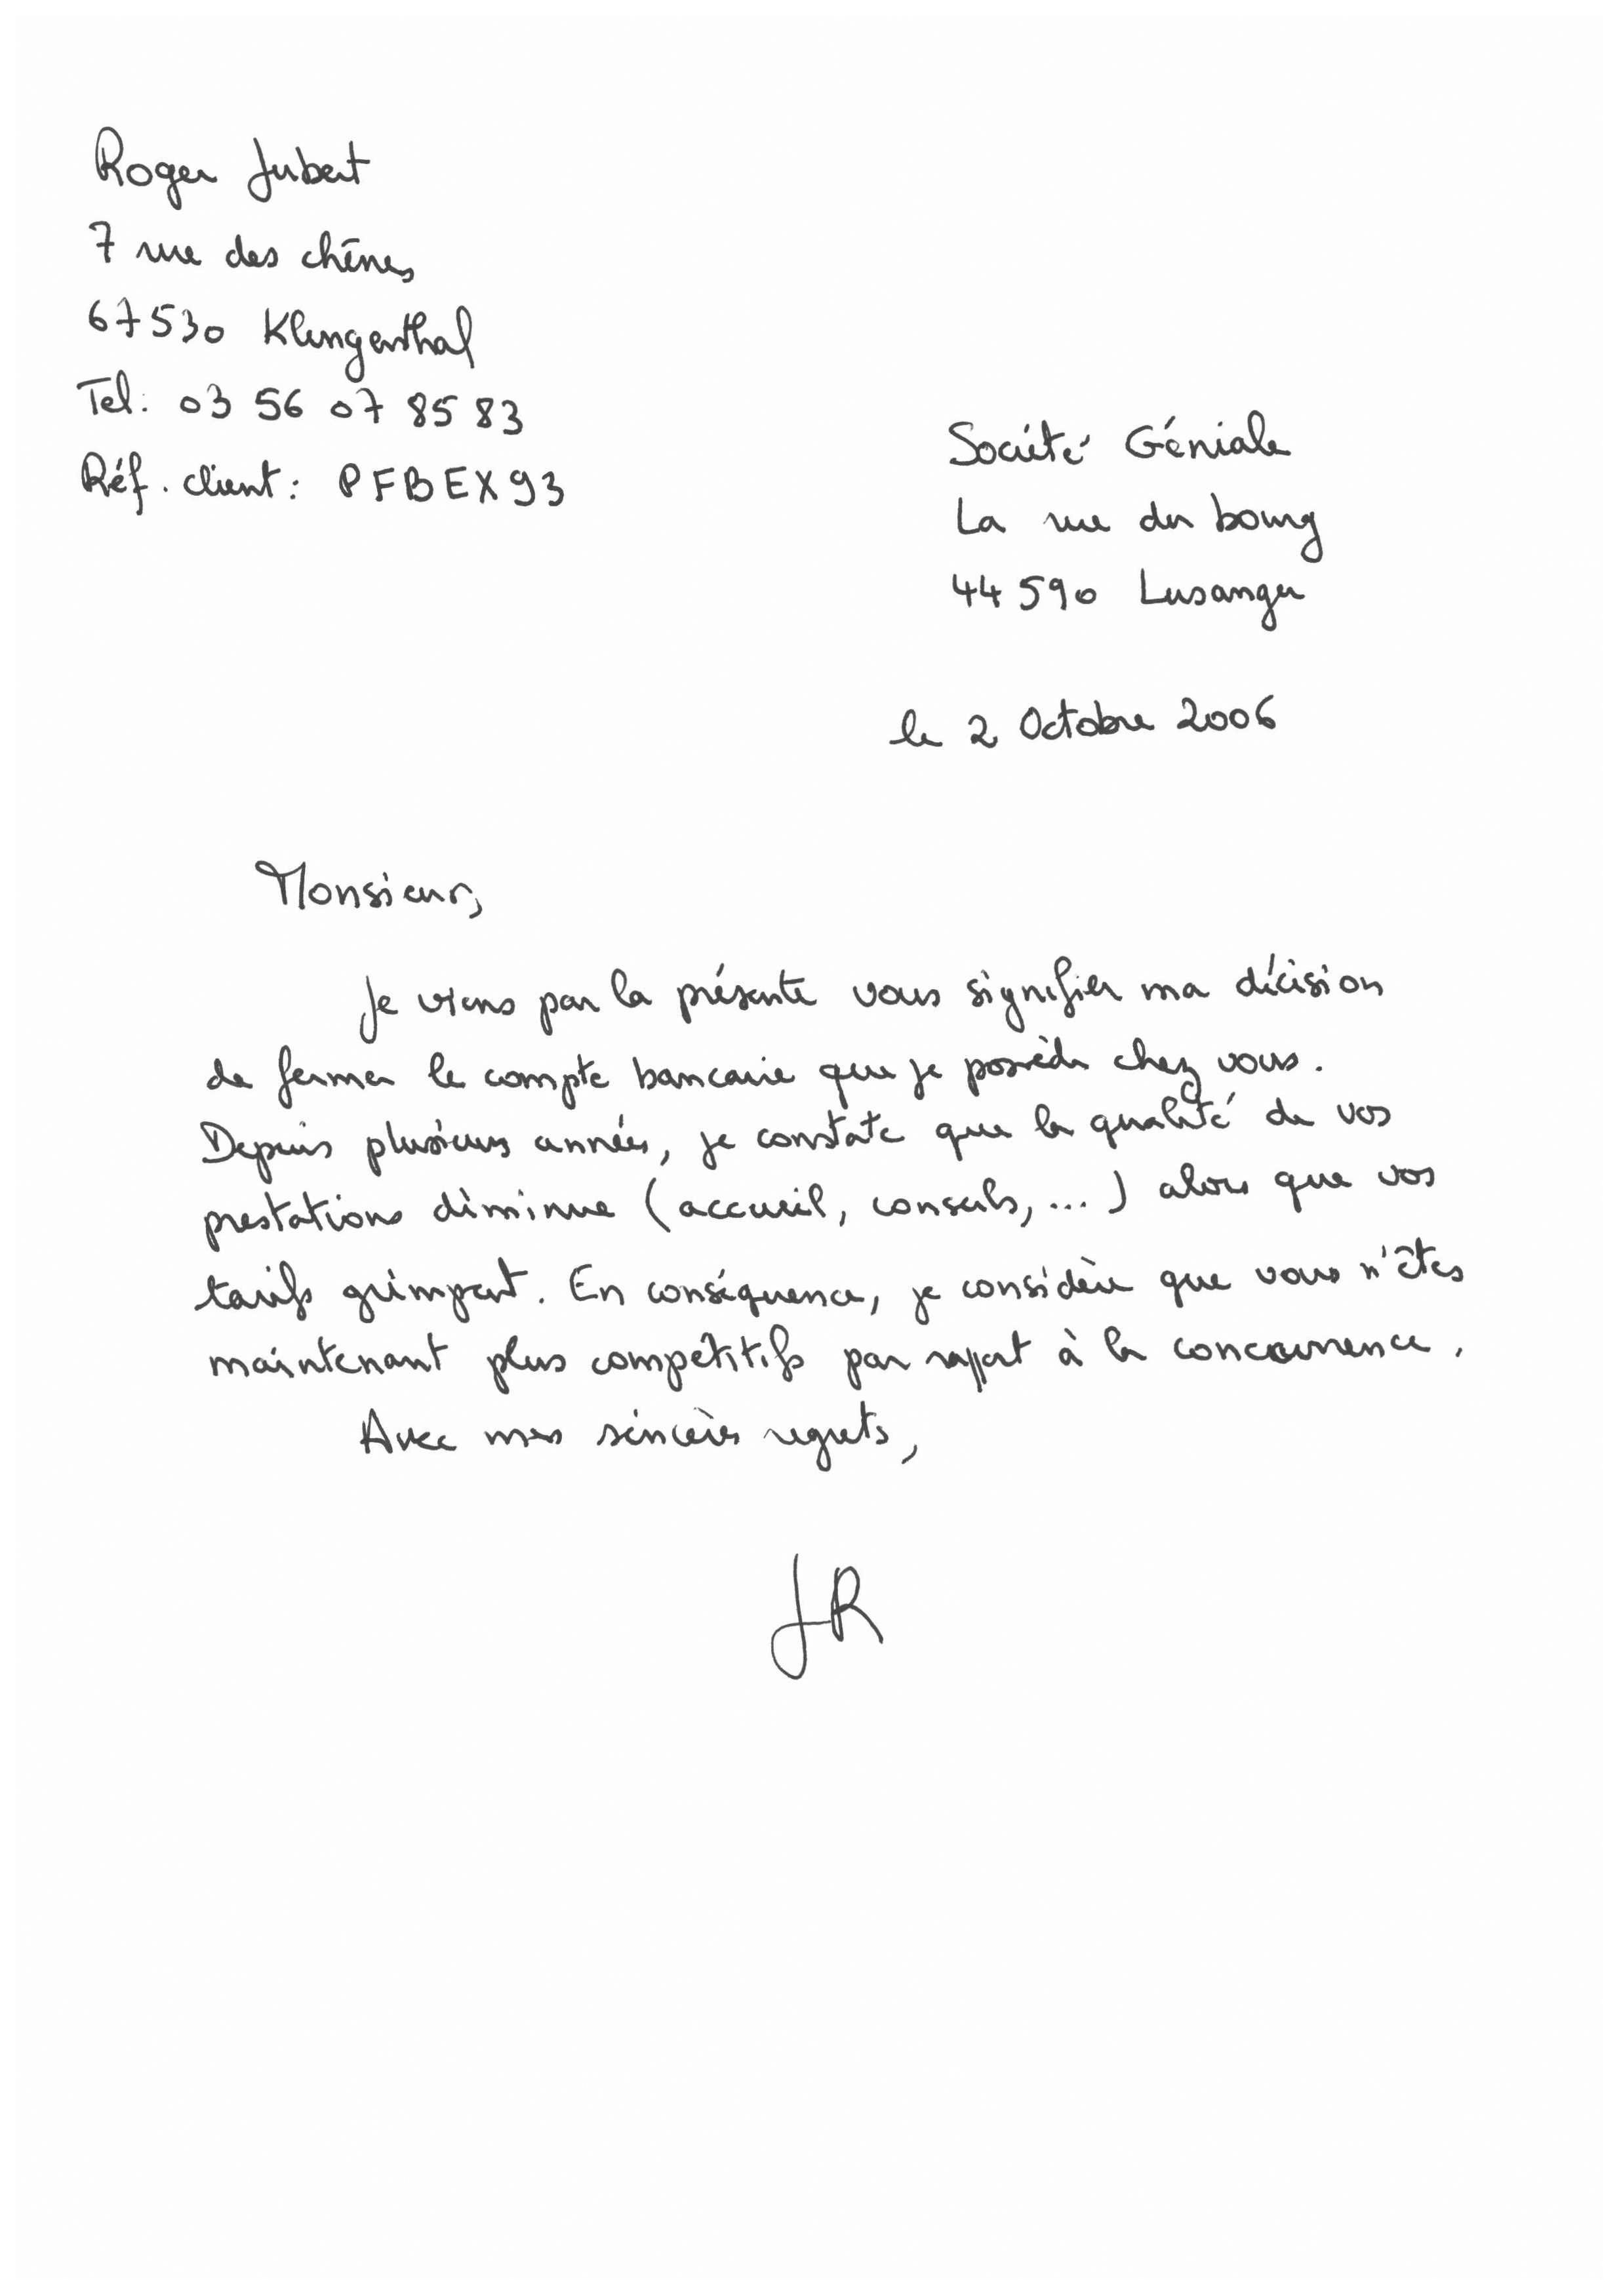 Roger Jubert
7 rue des chênes
67530 Klingenthal
Tel: 03 56 07 85 83
Réf. client : PFBEX93
Société Géniale
La rue du bourg
44590 Lusanger
le 2 Octobre 2006
Monsieur,
Je viens par la présente vous signifier ma décision
de fermer le compte bancaire que je possède chez vous.
Depuis plusieurs années, je constate que la qualité de vos
prestations diminue (accueil, conseils, ...) alors que vos
tarifs grimpent. En conséquence, je considère que vous n'êtes
maintenant plus compétitifs par rapport à la concurrence.
Avec mes sincères regrets,
JR